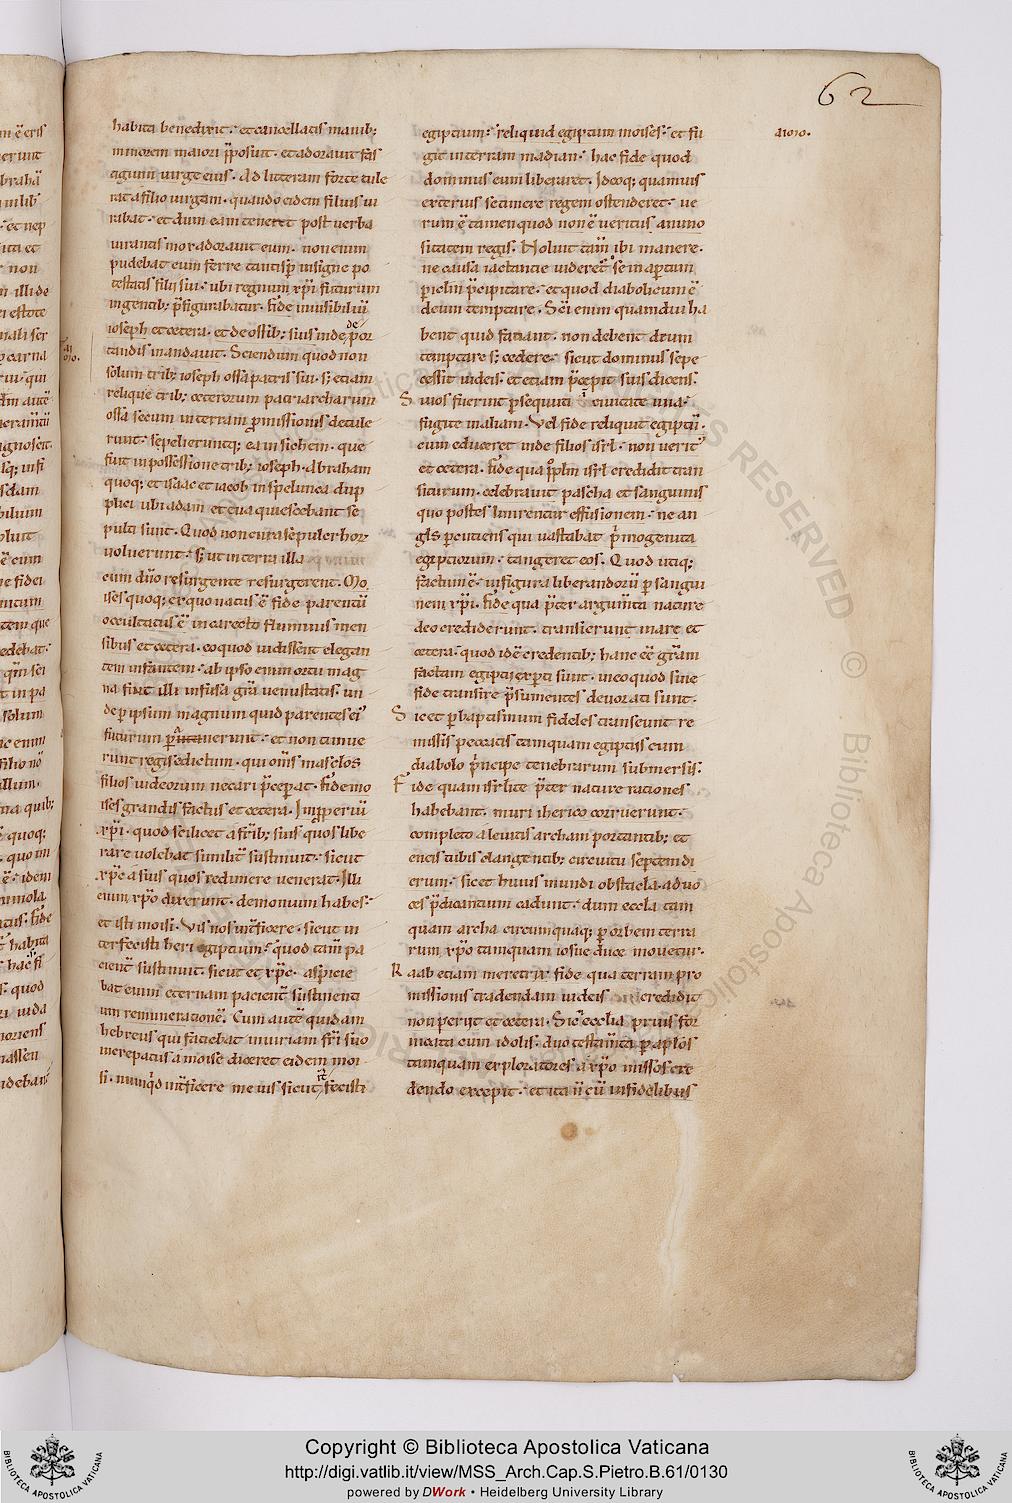 62
habita benedixit. et cancellatis manib;
minorem maiori p̄posuit. et adorauit fas
tigium uirge eius. Ad litteram forte tule
rat a filio uirgam. quando eidem filius iu
rabat. et dum eam teneret post uerba
iurantis mox adorauit eum. non enim
pudebat eum ferre tantisp̄ insigne po
testatis filii sui. ubi regnum xp̄i futurum
ingentib; p̄figurabatur. fide inuisibiliū
ioseph et cetera. et de ossib; suis inde por
tandis mandauit. Sciendum quod non
solum trib; ioseph ossa patris sui. s; etiam
relique trib; ceterorum patriarcharum
ossa secum in terram promissionis detule
runt. sepelieruntq; ea in sichem. que
fuit in possessione trib; ioseph. Abraham
quoq; et isaac et iacob in spelunca dup
plici ubi adam et eua quiescebant se
pulti sunt. Quod non cura sepulcri hoz
uoluerunt. s; ut in terra illa
cum dn̄o resurgente resurgerent. Mo
ises quoq; ex quo natus ē fide parentū
occultatus ē in carecto fluminis men
sibus et cetera. eo quod uidissent elegan
tem infantem. ab ipso enim ortu mag
na fuit illi infusa grā uenustatis. un
de p ipsum magnum quid parentes ei
futurum
runt regis edictum. qui om̄s masclos
filios iudeorum necari p̄ceperat. fide mo
ises grandis factus et cetera. Improperiū
xp̄i. quod scilicet a fr̄ib; suis quos libe
rare uolebat similit̄ sustinuit. sicut
xp̄c a suis quos redimere uenerat. Illi
enim xp̄o dixerunt. demonium habes.
et isti moisi. Vis nos int̄ficere. sicut in
terfecisti heri egiptium. quod tam̄ pa
cient̄ sustinuit. sicut et xp̄c. aspicie
bat enim eternam pacient̄ sustinenti
um remunerationē. Cum autē quidam
hebreus qui faciebat iniuriam fr̄i suo
increpatus a moise diceret eidem moi
si. nunq̄d int̄ficere me uis sicut fecisti
egiptium. reliquid egiptum moises. et fu
git in terram madian. hac fide quod
dominus eum liberaret. Idcoq; quamuis
exterius se timere regem ostenderet. ue
rum ē tamen quod non ē ueritus animo
sitatem regis. Noluit tam̄ ibi manere.
ne causa iactantie uideret̄ se in aptum
p̄iclm p̄cipitare. et quod diabolicum ē
deum temptare. Sc̄i enim quamdiu ha
bent quid faciant. non debent dn̄m
temptare s; cedere. sicut dominus sepe
cessit iudeis. et etiam p̄cepit suis dicens.
Si uos fuerint psequuti ī ciuitate una.
fugite in aliam. Vel fide reliquit egiptū.
cum educeret inde filios isrl. non uerit᾽
et cetera. fide qua pplm isrl credidit tran
siturum. celebrauit pascha et sanguinis
quo postes linirentur effusionem. ne an
gls pcutiens qui uastabat p̄mogenita
egiptiorum. tangeret eos. Quod utiq;
factum ē. in figura liberandorū p sangui
nem xp̄i. fide qua p̄ter argum̄ta nature
deo crediderunt. transierunt mare et
cetera. quod idē credentib; hanc eē grām
factam egiptii experti sunt. in eo quod sine
fide transire p̄sumentes deuorati sunt.
Sic et p baptismum fideles transeunt re
missis peccatis tamquam egiptiis cum
diabolo p̄ncipe tenebrarum submersis.
Fide quam isrlite p̄ter nature rationes
habebant. muri iherico corruerunt.
completo a leuitis archam portantib; et
eneis tibis clangentib; circuitu septem di
erum. sic et huius mundi obstacla. ad uo
ces p̄dicantium cadunt. dum eccla tam
quam archa circumquaq; p orbem terra
rum xp̄o tamquam iosue duce mouetur.
Raab etiam meretrix fide qua terram pro
missionis tradendam iudeis credidit
non periit et cetera. Sic ecclia prius for
nicata cum idolis. duo testam̄ta p aplos
tamquam exploratores a xp̄o missos cre
dendo excepit. et ita n̄ cū infidelibus
Copyright © Biblioteca Apostolica Vaticana
http://digi.vatlib.it/view/MSS_Arch.Cap.S.Pietro.B.61/0130
powered by DWork • Heidelberg University Library